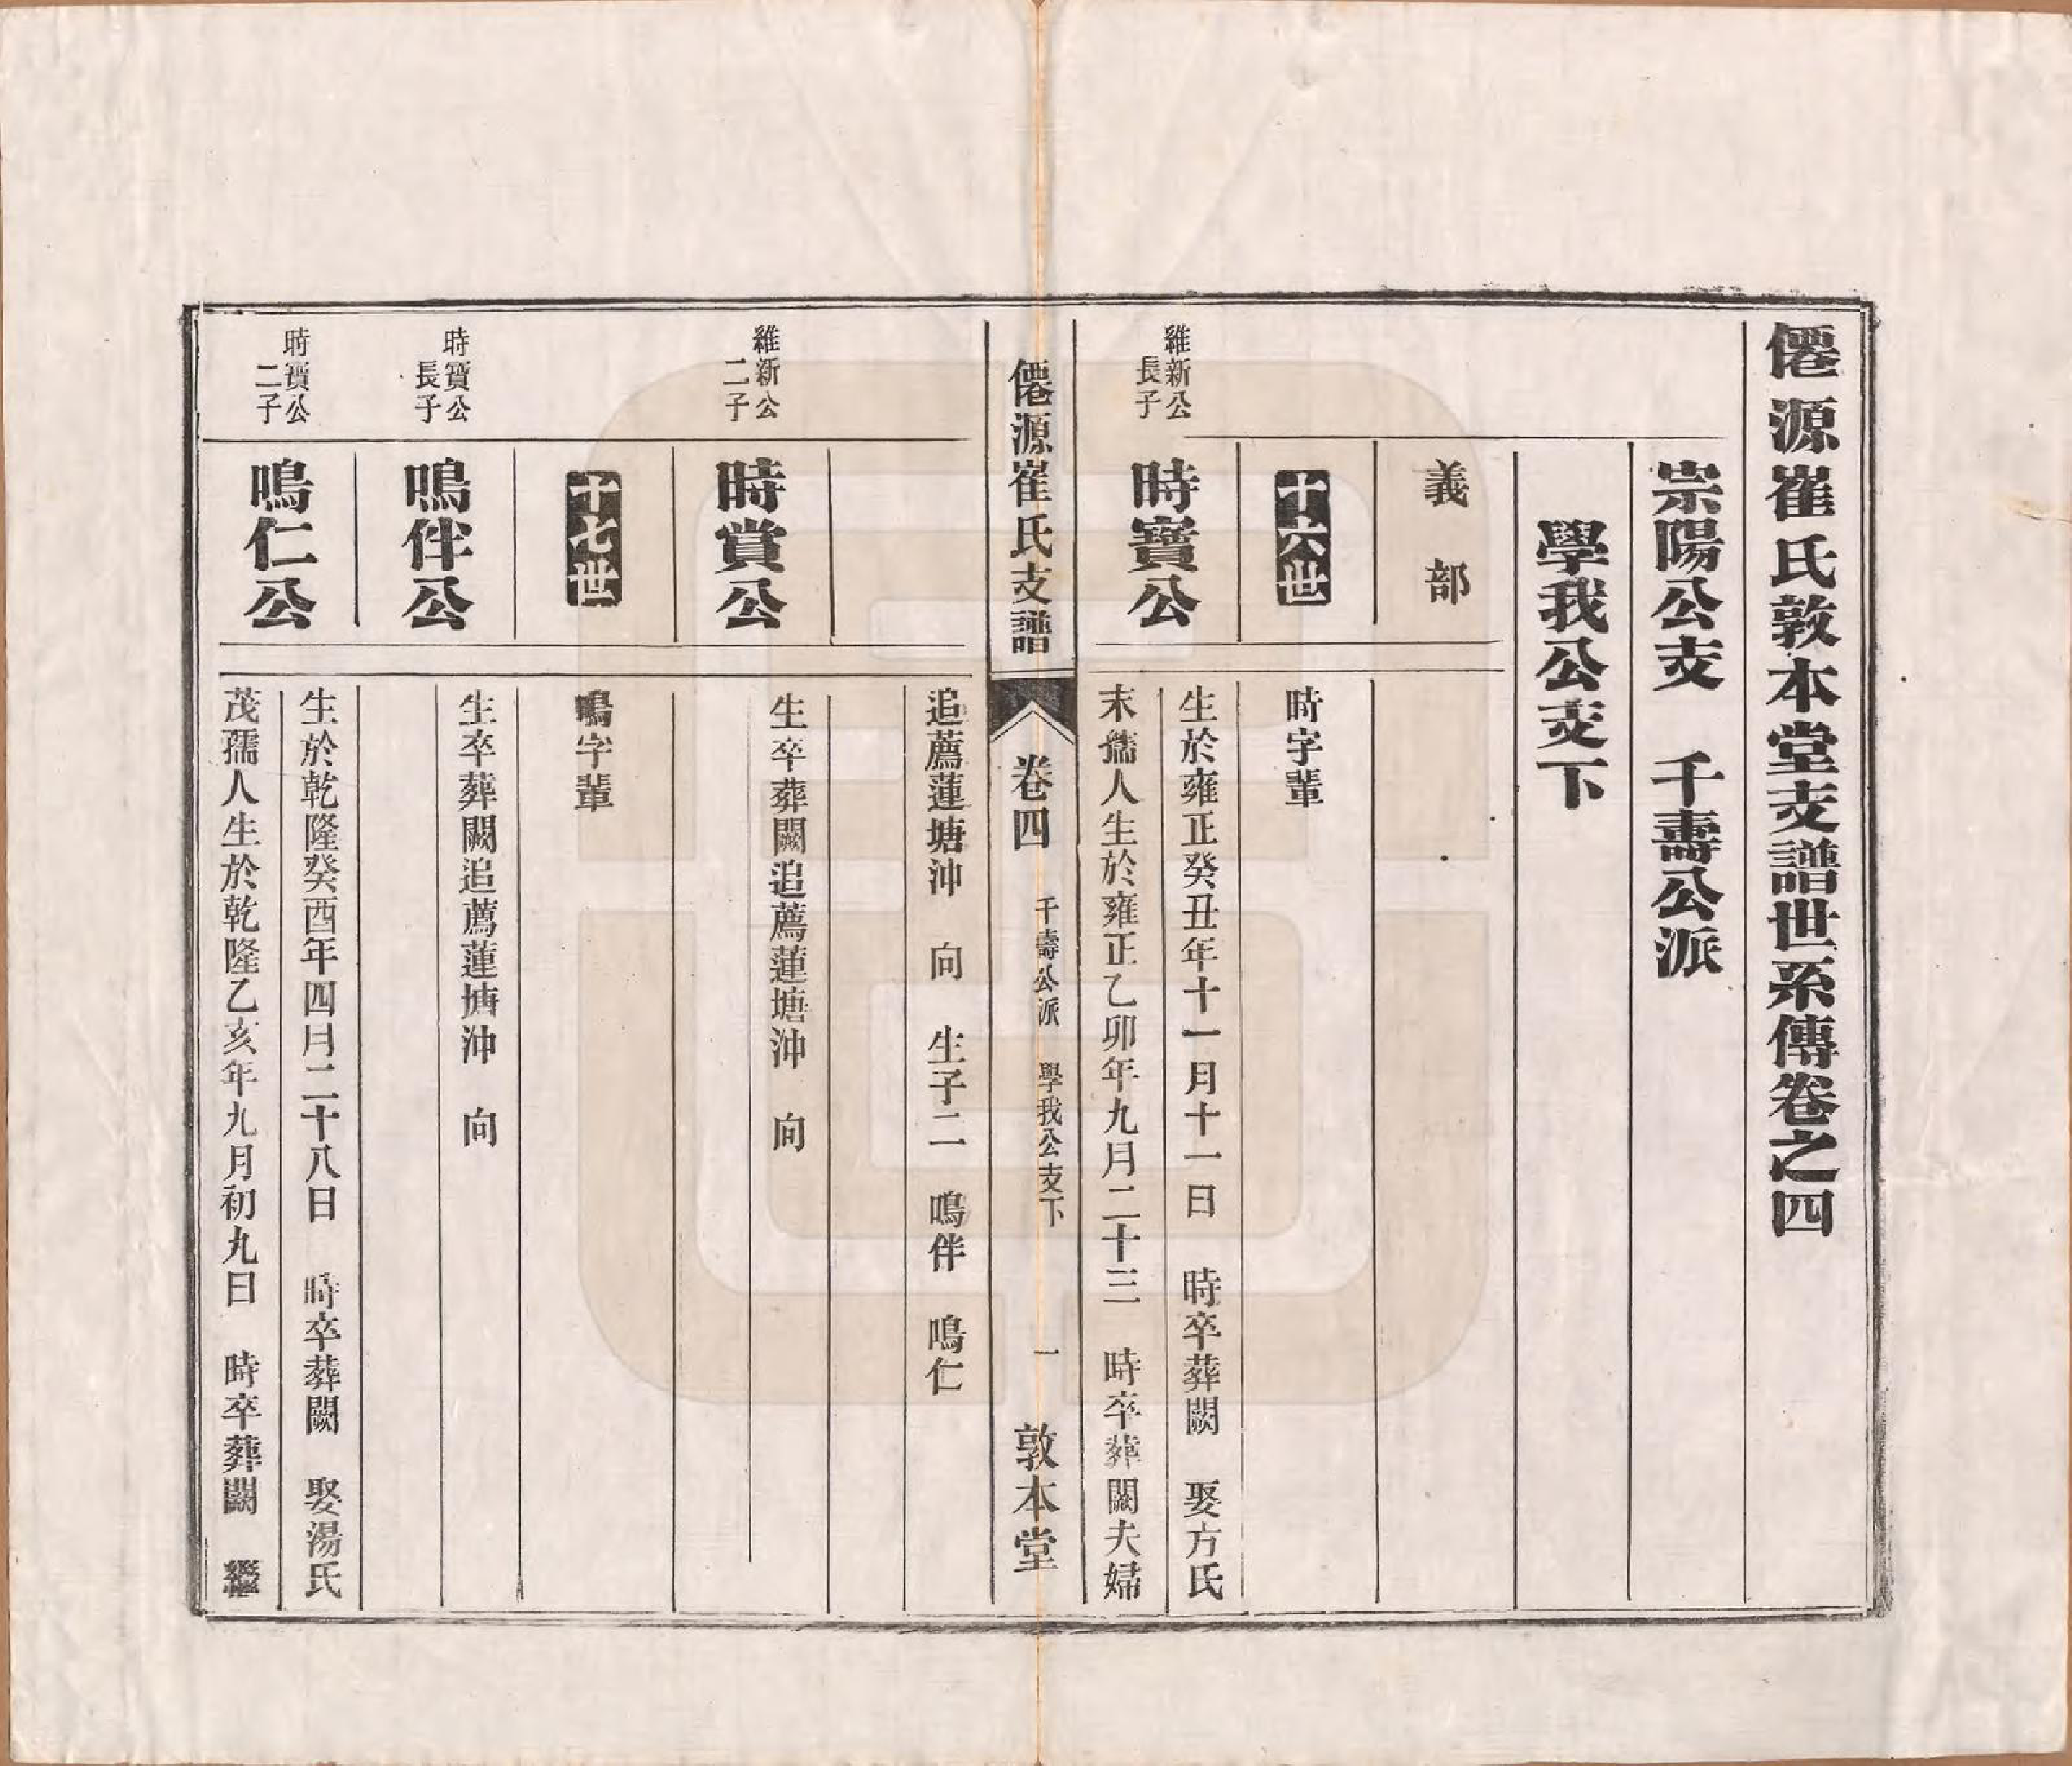 僊源崔氏敦本堂支譜世系傳卷之四
崇陽公支　千壽公派
學我公支下
義　部
十六世
時字輩
維新公
長子
時寶公
生於雍正癸丑年十一月十一日　時卒葬闕　娶方氏
末孺人生於雍正乙卯年九月二十三　時卒葬闕夫婦
僊源崔氏支譜　卷四　千壽公派　學我公支下　一　敦本堂
追薦蓮塘沖　向　生子二　鳴伴　鳴仁
維新公
二子
時賞公
生卒葬闕追薦蓮塘沖　向
十七世
鳴字輩
時寶公
長子
鳴伴公
生卒葬闕追薦蓮塘沖　向
時寶公
二子
鳴仁公
生於乾隆癸酉年四月二十八日　時卒葬闕　娶湯氏
茂孺人生於乾隆乙亥年九月初九日　時卒葬闕　繼